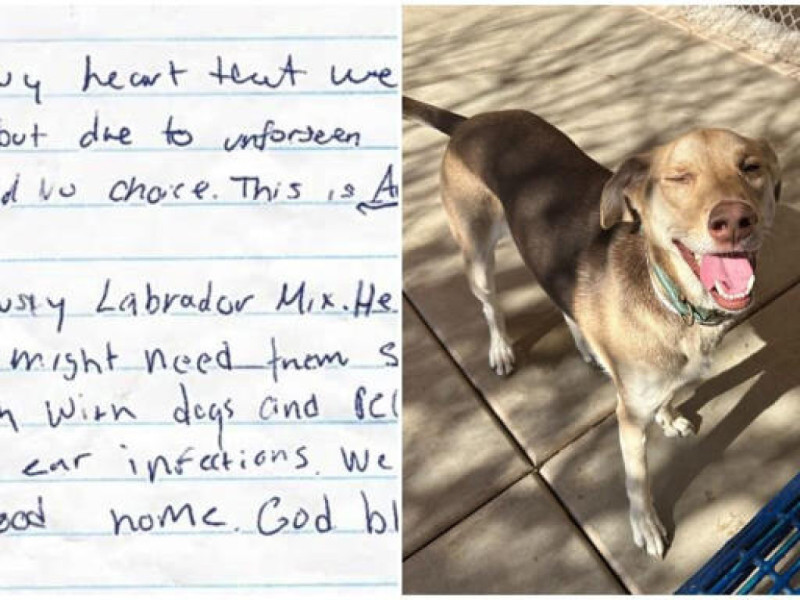 vy heart that we
but due to unforseen
d no choice. This is A
usky Labrador Mix. He
might need them s
n with dogs and
ear infections. We
ood home. God bl